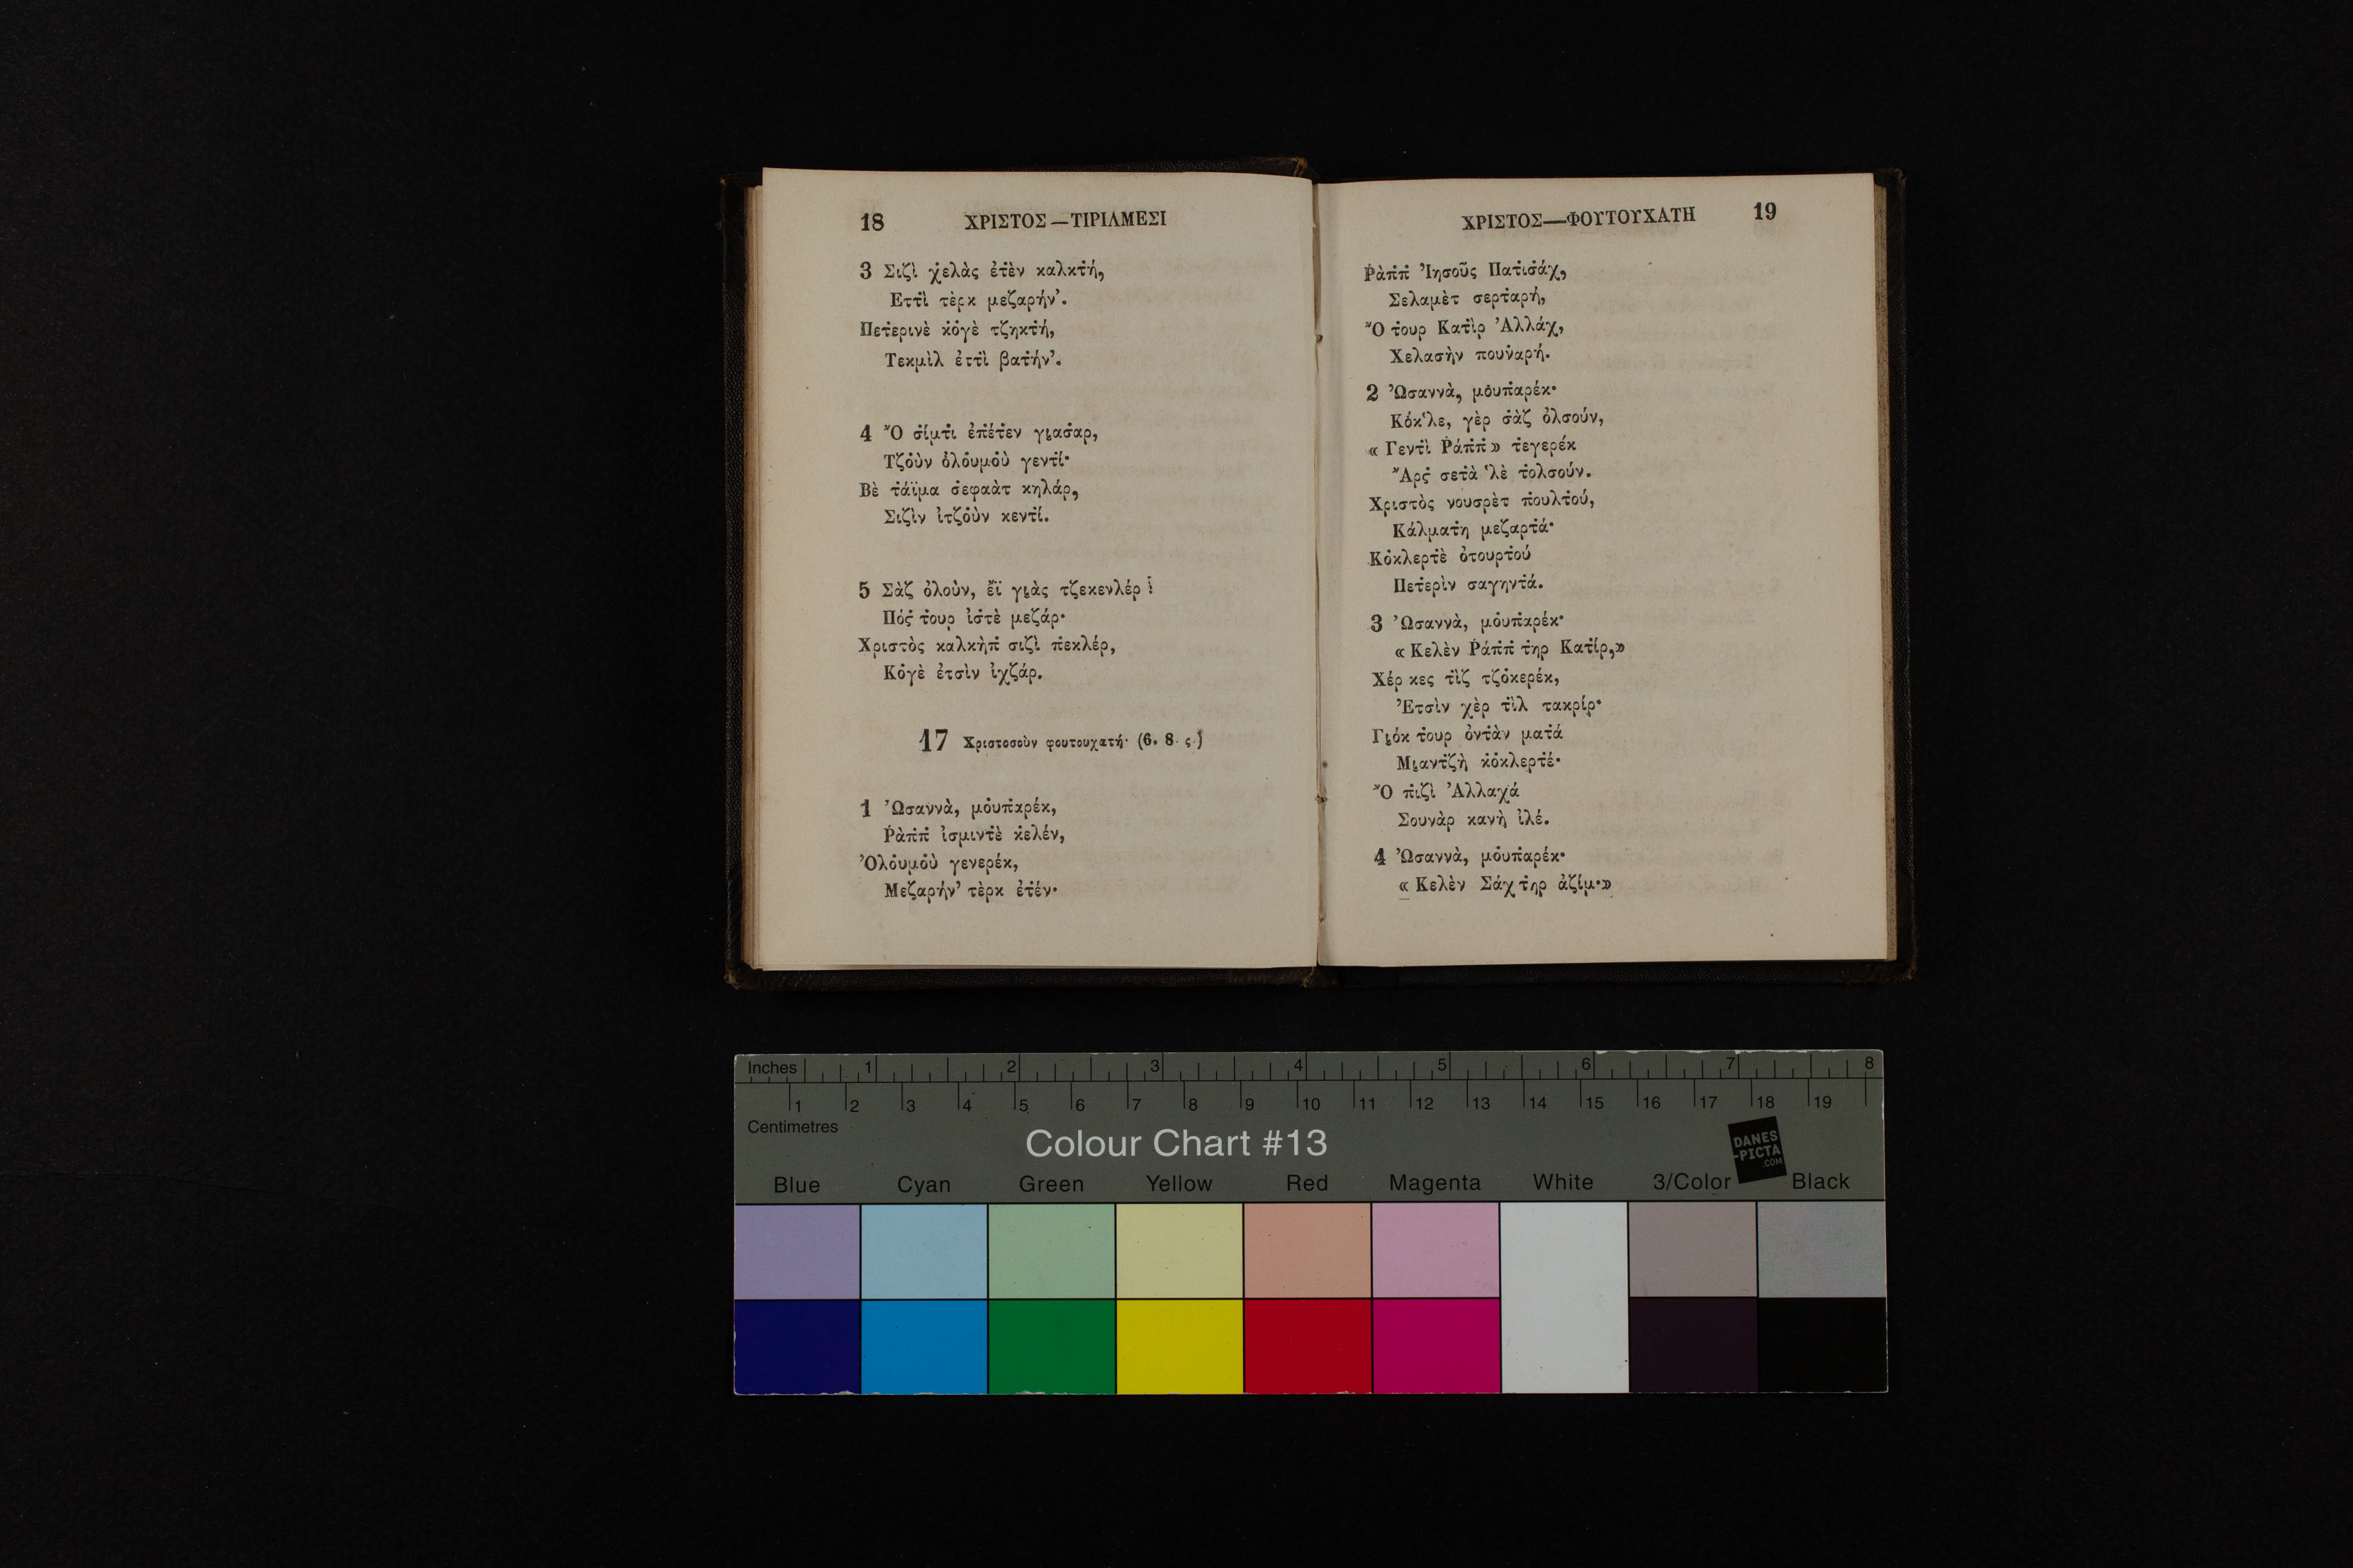 18 ΧΡΙΣΤΟΣ—ΤΙΡΙΛΜΕΣΙ
3 Σιζὶ χ̇ελὰς ἐτ̇ὲν καλκτ̇ή,
Εττὶ τὲρκ μεζαρήν̓.
Πετ̇ερινὲ κ̇ὀγὲ τζηκτ̇ή,
Τεκμὶλ ἐττὶ βατ̇ήν̓.
4 Ὂ σ̇ίμτι ἐπ̇έτ̇εν γιασ̇αρ,
Τζ̇οὺν ὀλ̇ουμ̇οὺ γεντί·
Βὲ τ̇άϊμα σ̇εφαὰτ κηλάρ,
Σιζὶν ἰτζ̇οὺν κεντί.
5 Σὰζ ὀλοὺν, ἔϊ γιὰς τζεκενλέρ!
Πός̇ τ̇ουρ ἰσ̇τὲ μεζάρ·
Χριστὸς καλκὴπ̇ σιζὶ π̇εκλέρ,
Κ̇ογὲ ἐτσὶν ἰχζάρ.
17 Χριστοσοὺν φουτουχατή· (6. 8. ς.)
1 Ὡσαννὰ, μ̇ουπ̇αρέκ,
Ῥὰπ̇π̇ ἰσμιντ̇ὲ κ̇ελέν,
Ὀλ̇ουμ̇οὺ γενερέκ,
Μεζαρήν̓ τὲρκ ἐτ̇έν·
ΧΡΙΣΤΟΣ—ΦΟΥΤΟΥΧΑΤΗ 19
Ῥὰπ̇π̇ Ἰησοῦς Πατ̇ισ̇άχ,
Σελαμὲτ σερτ̇αρή,
Ὂ τ̇ουρ Κατ̇ὶρ Ἀλλάχ,
Χελασὴν πουν̇αρή.
2 Ὡσαννὰ, μ̇ουπ̇αρέκ·
Κ̇όκ̔λε, γὲρ σ̇ὰζ ὀλσούν,
« Γεντὶ Ῥάπ̇π̇ » τ̇εγερέκ
Ἄρς̇ σετὰ ̔λὲ τ̇ολσούν.
Χριστὸς νουσρὲτ π̇ουλτ̇ού,
Κάλματ̇η μεζαρτ̇ά·
Κ̇οκλερτ̇ὲ ὀτουρτ̇ού
Πετ̇ερὶν σαγηντ̇ά.
3 Ὡσαννὰ, μ̇ουπ̇αρέκ·
« Κελὲν Ῥάπ̇π̇ τ̇ηρ Κατ̇ίρ,»
Χέρ κες τ̇ὶζ τζ̇οκερέκ,
Ἐτσὶν χὲρ τ̇ὶλ τακρίρ·
Γιόκ τ̇ουρ ὀντ̇ὰν ματ̇ά
Μιαντζ̇ὴ κ̇οκλερτ̇έ·
Ὂ π̇ιζὶ Ἀλλαχά
Σουνὰρ κανὴ ἰλέ.
4 Ὡσαννὰ, μ̇ουπ̇αρέκ·
« Κελὲν Σάχ τ̇ηρ ἀζίμ·»
Inches 1 2 3 4 5 6 7 8
1 2 3 4 5 6 7 8 9 10 11 12 13 14 15 16 17 18 19
Centimetres
Colour Chart #13
DANES
-PICTA
.COM
Blue Cyan Green Yellow Red Magenta White 3/Color Black